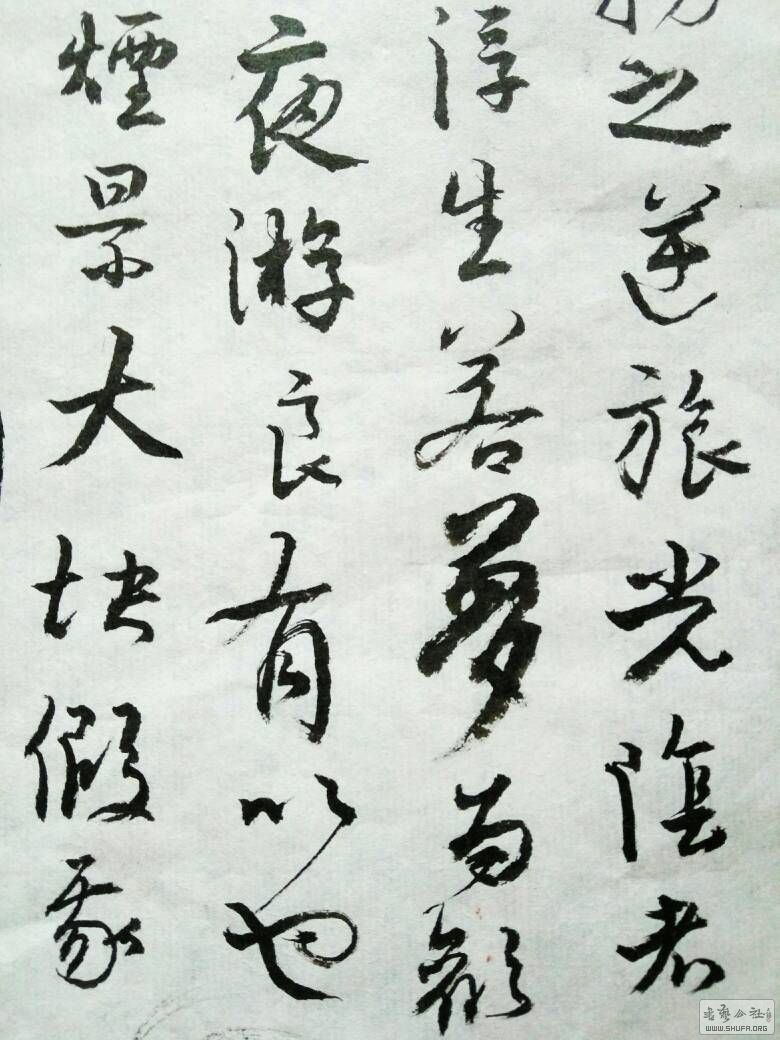 物之逆旅光陰者
浮生若夢為歡
夜游良有以也
煙景大块假我
书艺公社
WWW.SHUFA.ORG